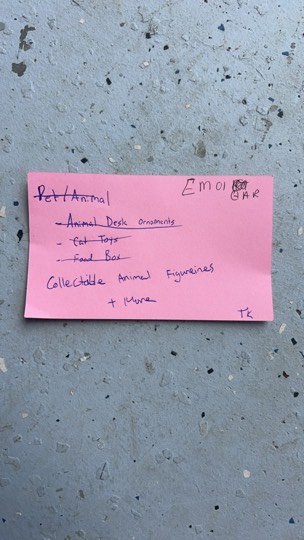 Pet/Animal
EMOI
QAR
- Animal Desk Ornoments
- Cat Toys
- Food Box
Collectable Animal Figureines
+ More
TK